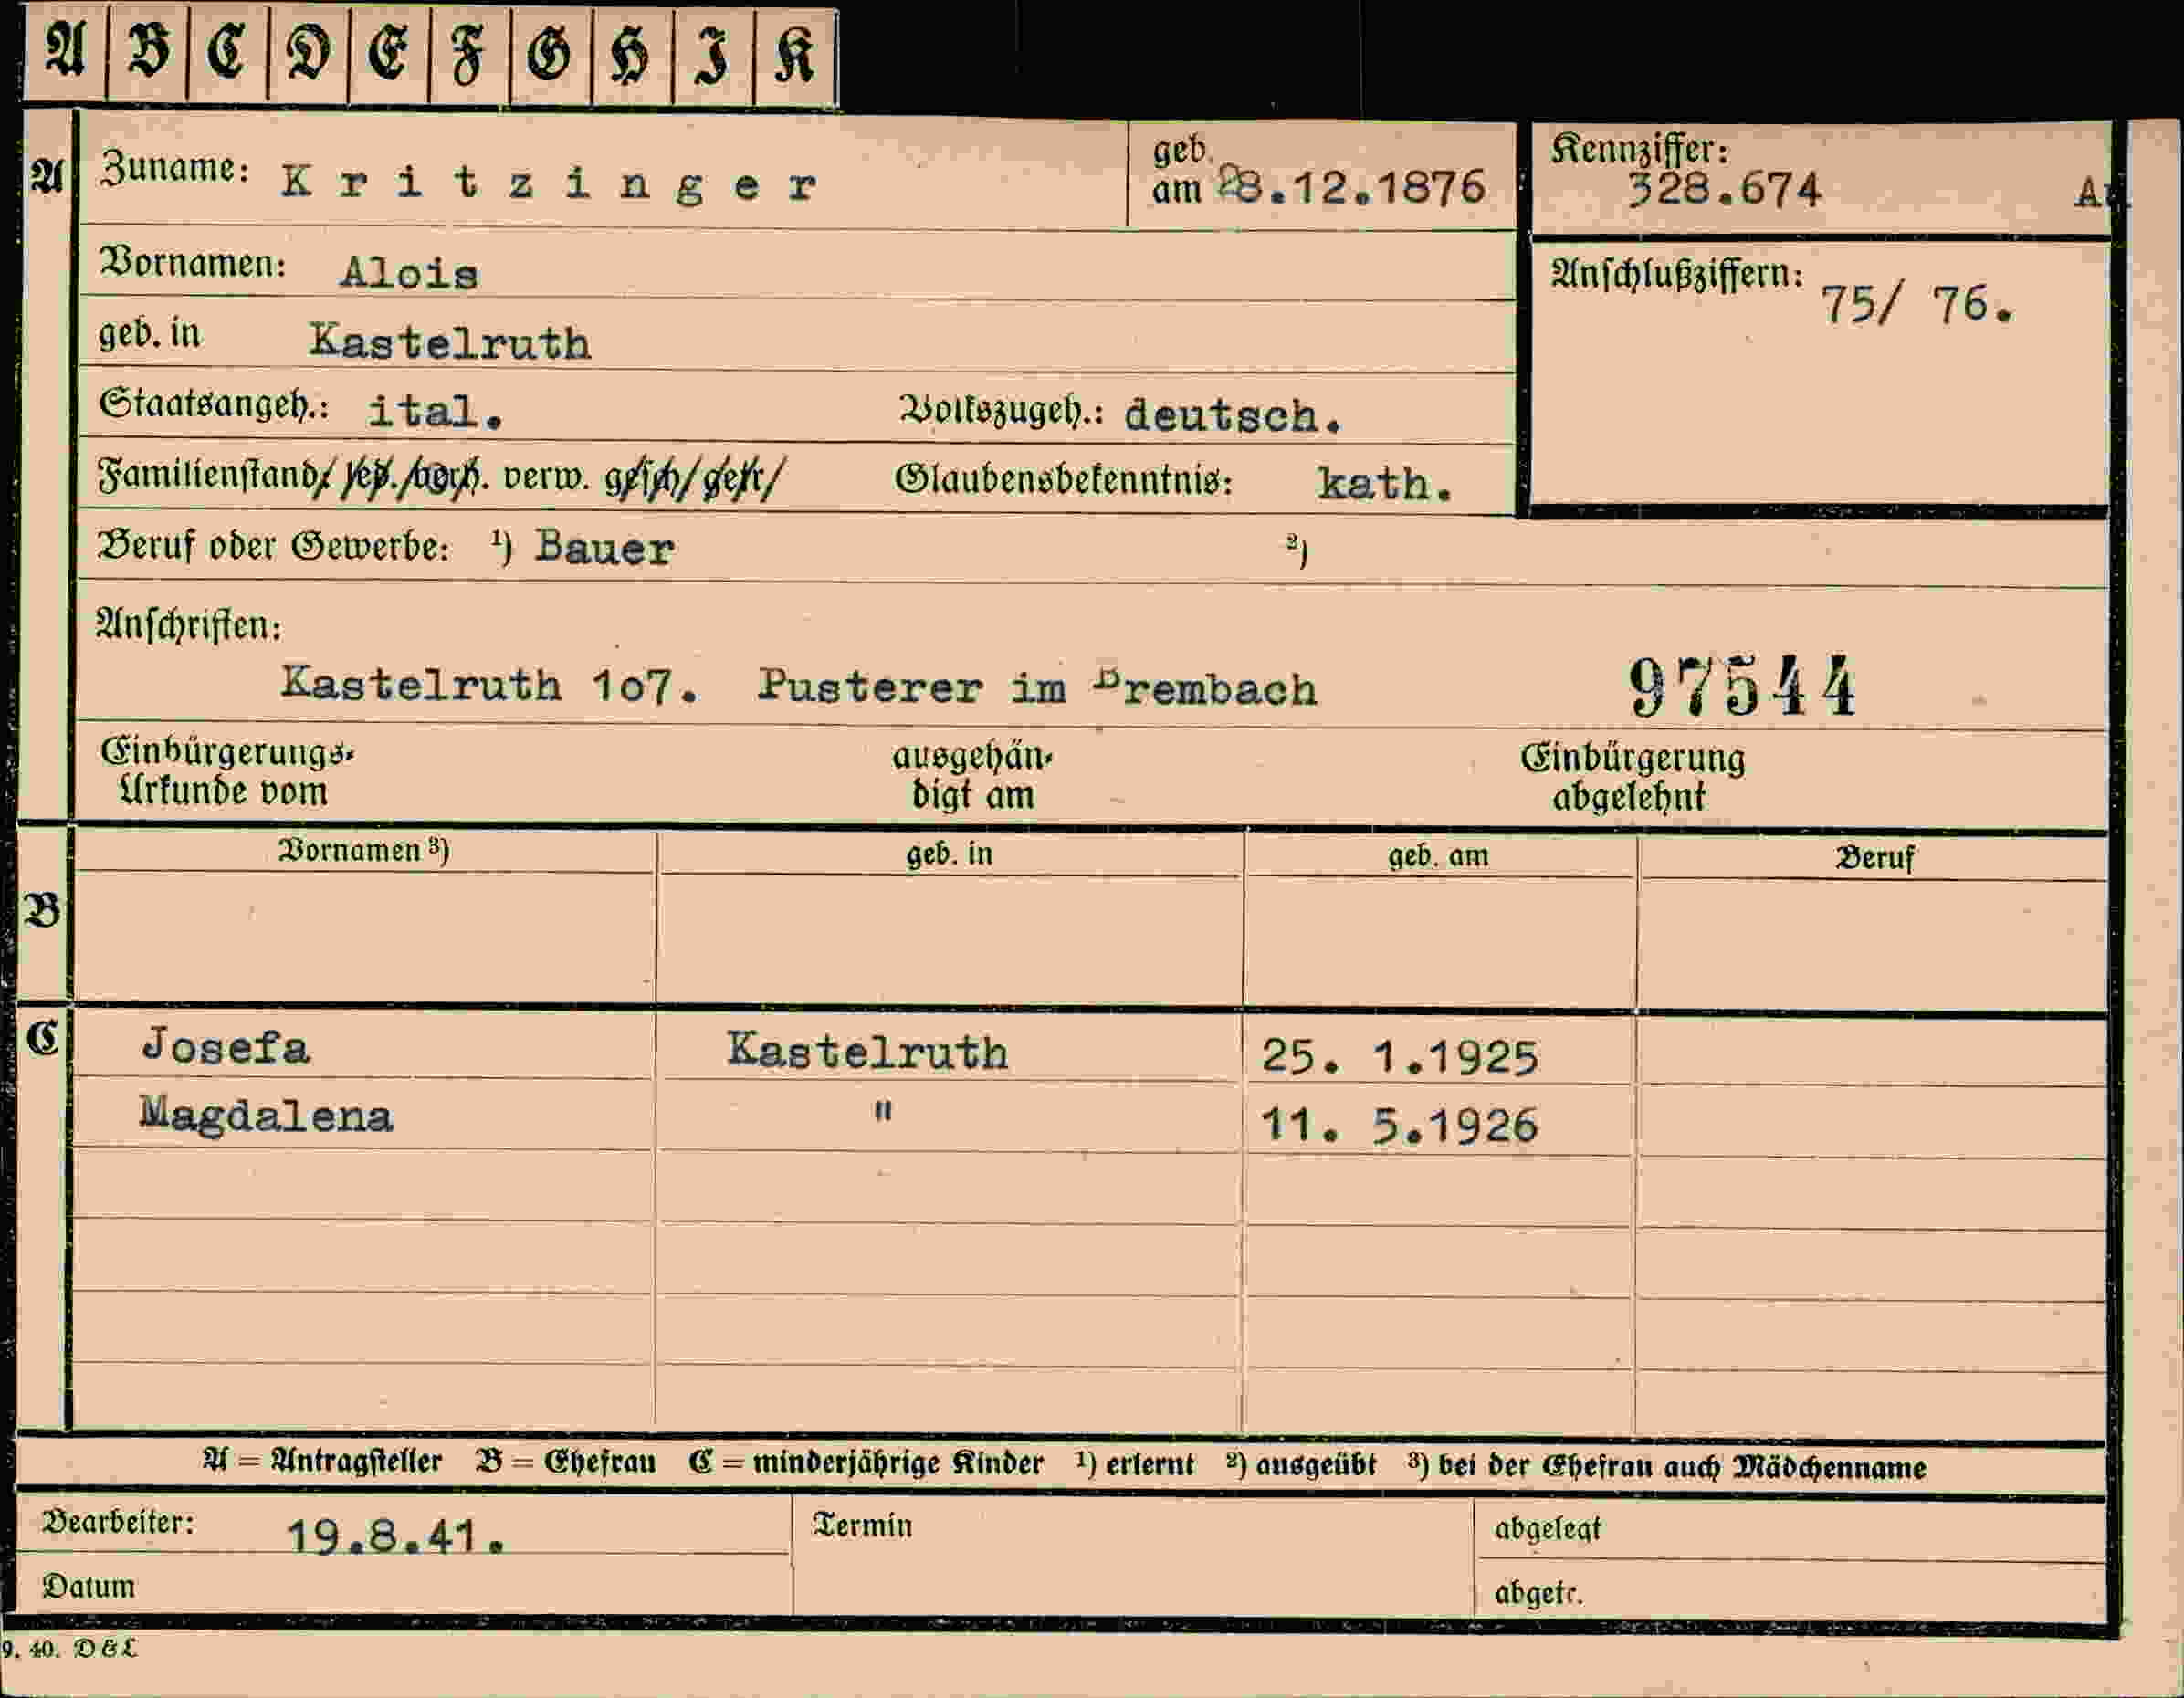 A B C D E F G H I K
A Zuname: Kritzinger geb. am 28.12.1876 Kennziffer: 328.674
Vornamen: Alois Anschlußziffern: 75/ 76.
geb. in Kastelruth
Staatsangeh.: ital. Volkszugeh.: deutsch.
Familienstand: led./verh. verw. gesch/getr/ Glaubensbekenntnis: kath.
Beruf oder Gewerbe: ¹) Bauer ²)
Anschriften:
Kastelruth 1o7. Pusterer im Brembach 97544
Einbürgerungs- ausgehän- Einbürgerung
Urkunde vom digt am abgelehnt
Vornamen ³) geb. in geb. am Beruf
B
C Josefa Kastelruth 25. 1.1925
Magdalena " 11. 5.1926
A = Antragsteller B = Ehefrau C = minderjährige Kinder ¹) erlernt ²) ausgeübt ³) bei der Ehefrau auch Mädchenname
Bearbeiter: 19.8.41. Termin abgelegt
Datum abgetr.
9. 40. D&L